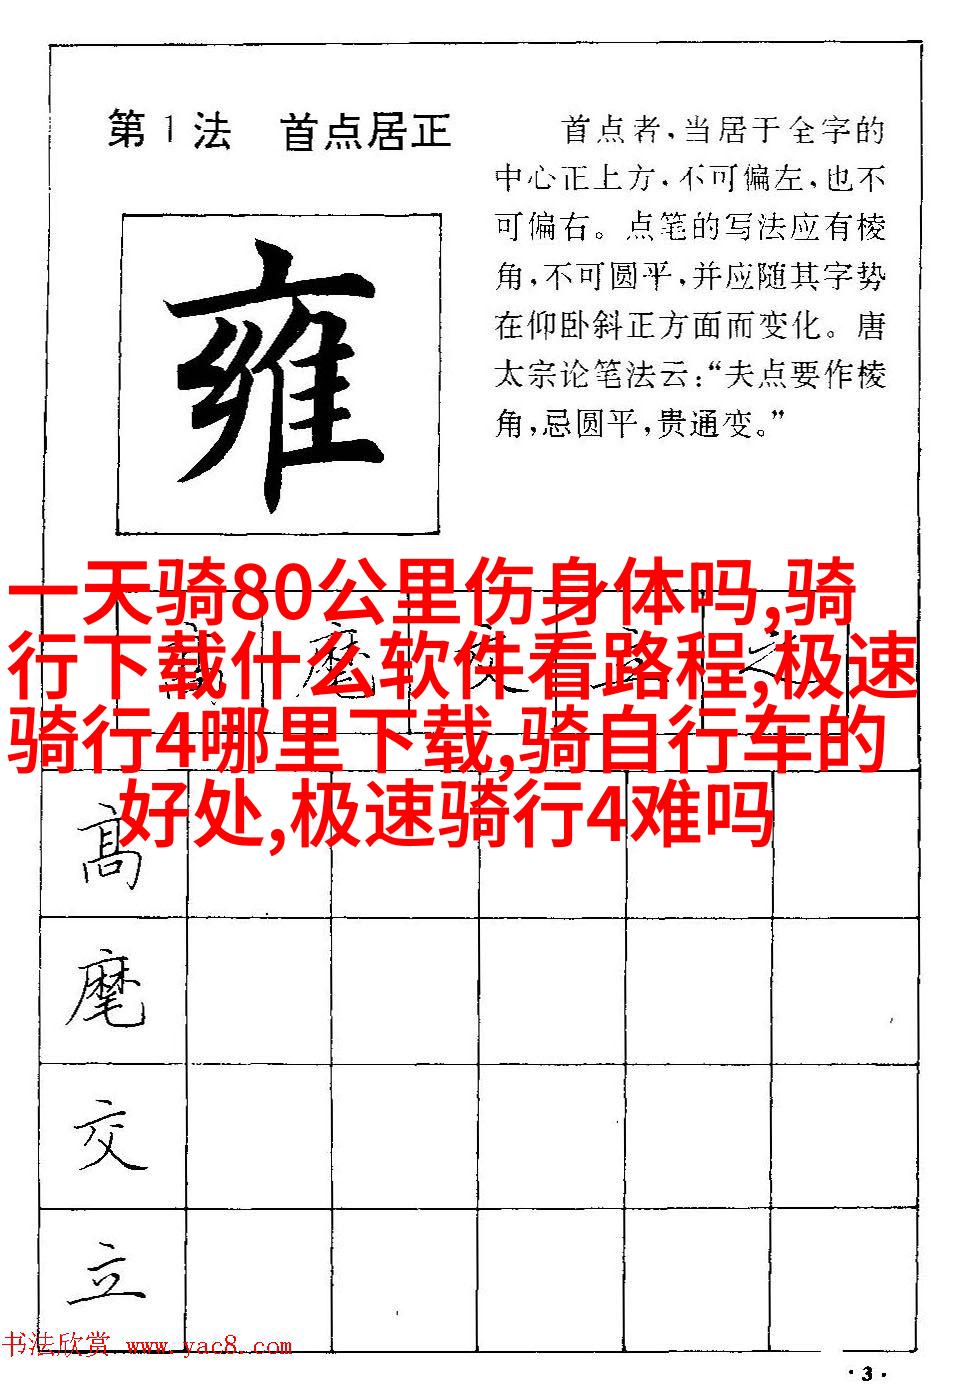 第1法 首点居正
首点者,当居于全字的
中心正上方,不可偏左,也不
可偏右。点笔的写法应有棱
角,不可圆平,并应随其字势
在仰卧斜正方面而变化。唐
太宗论笔法云:“夫点要作棱
角,忌圆平,贵通变。”
雍
一天骑80公里伤身体吗,骑
行下载什么软件看路程,极速
骑行4哪里下载,骑自行车的
好处,极速骑行4难吗
高
麾
交
立
书法欣赏 www.yac8.com
·3·